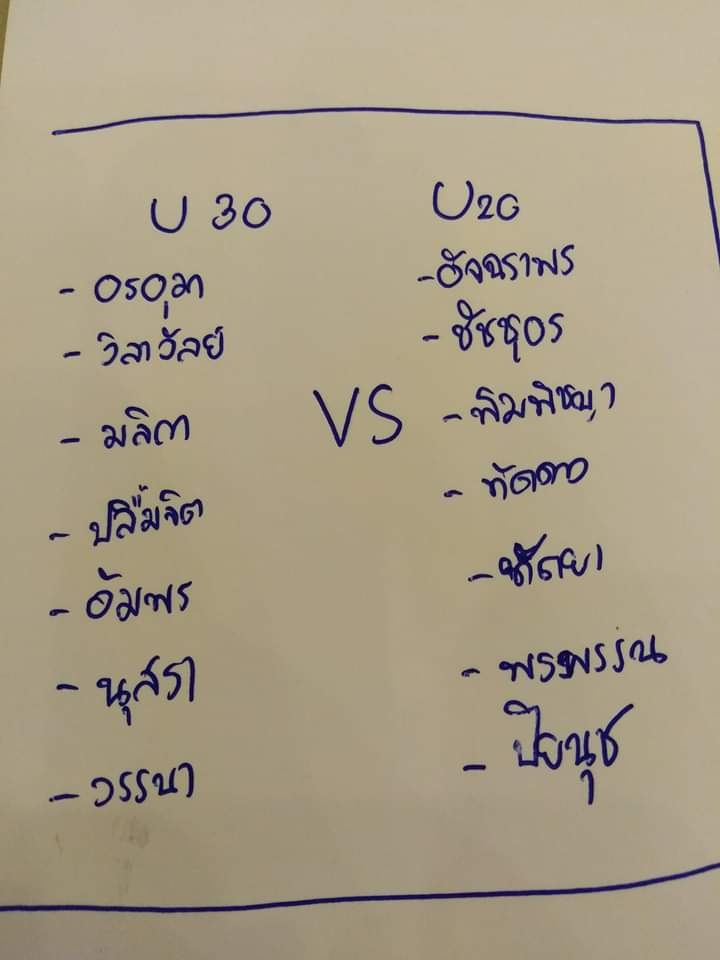 U 30
- อรอุมา
- วิลาวัลย์
- มลิกา
- ปลื้มจิต
- อัมพร
- นุสรา
- วรรนา
VS
U20
- อัจฉราพร
- ชัชชุอร
- พิมพิชญา
- ทัดดาว
- หัตยา
- พรพรรณ
- ปิยนุช